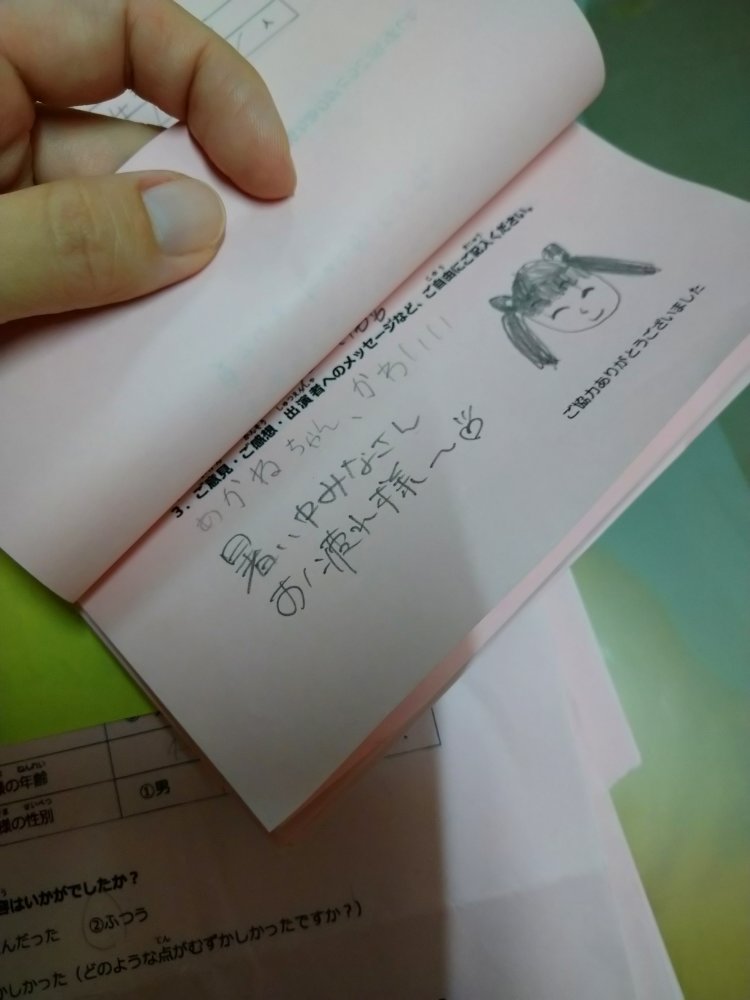 3. ご意見・ご感想・出演者へのメッセージなど、ご自由にご記入ください。
あかねちゃん、かわいい
暑い中みなさん
お疲れ様〜
ご協力ありがとうございました
様の年齢
ねんれい
様の性別
せいべつ
①男
はいかがでしたか？
んだった ②ふつう
かしかった（どのような点がむずかしかったですか？）
てん